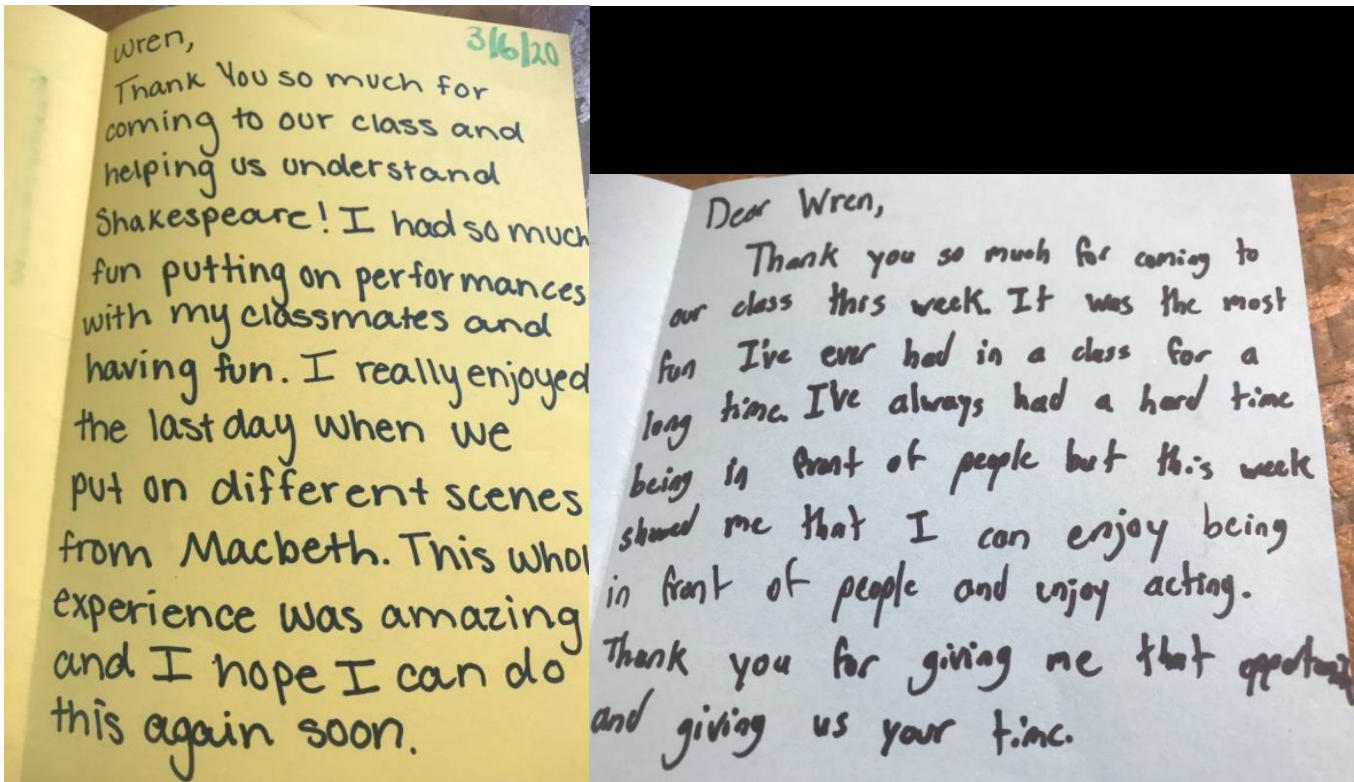 Wren,
3/6/20
Thank You so much for
coming to our class and
helping us understand
Shakespeare! I had so much
fun putting on performances
with my classmates and
having fun. I really enjoyed
the last day when we
put on different scenes
from Macbeth. This whol
experience was amazing
and I hope I can do
this again soon.
Dear Wren,
Thank you so much for coming to
our class this week. It was the most
fun I've ever had in a class for a
long time. I've always had a hard time
being in front of people but this week
showed me that I can enjoy being
in front of people and enjoy acting.
Thank you for giving me that
and giving us your time.